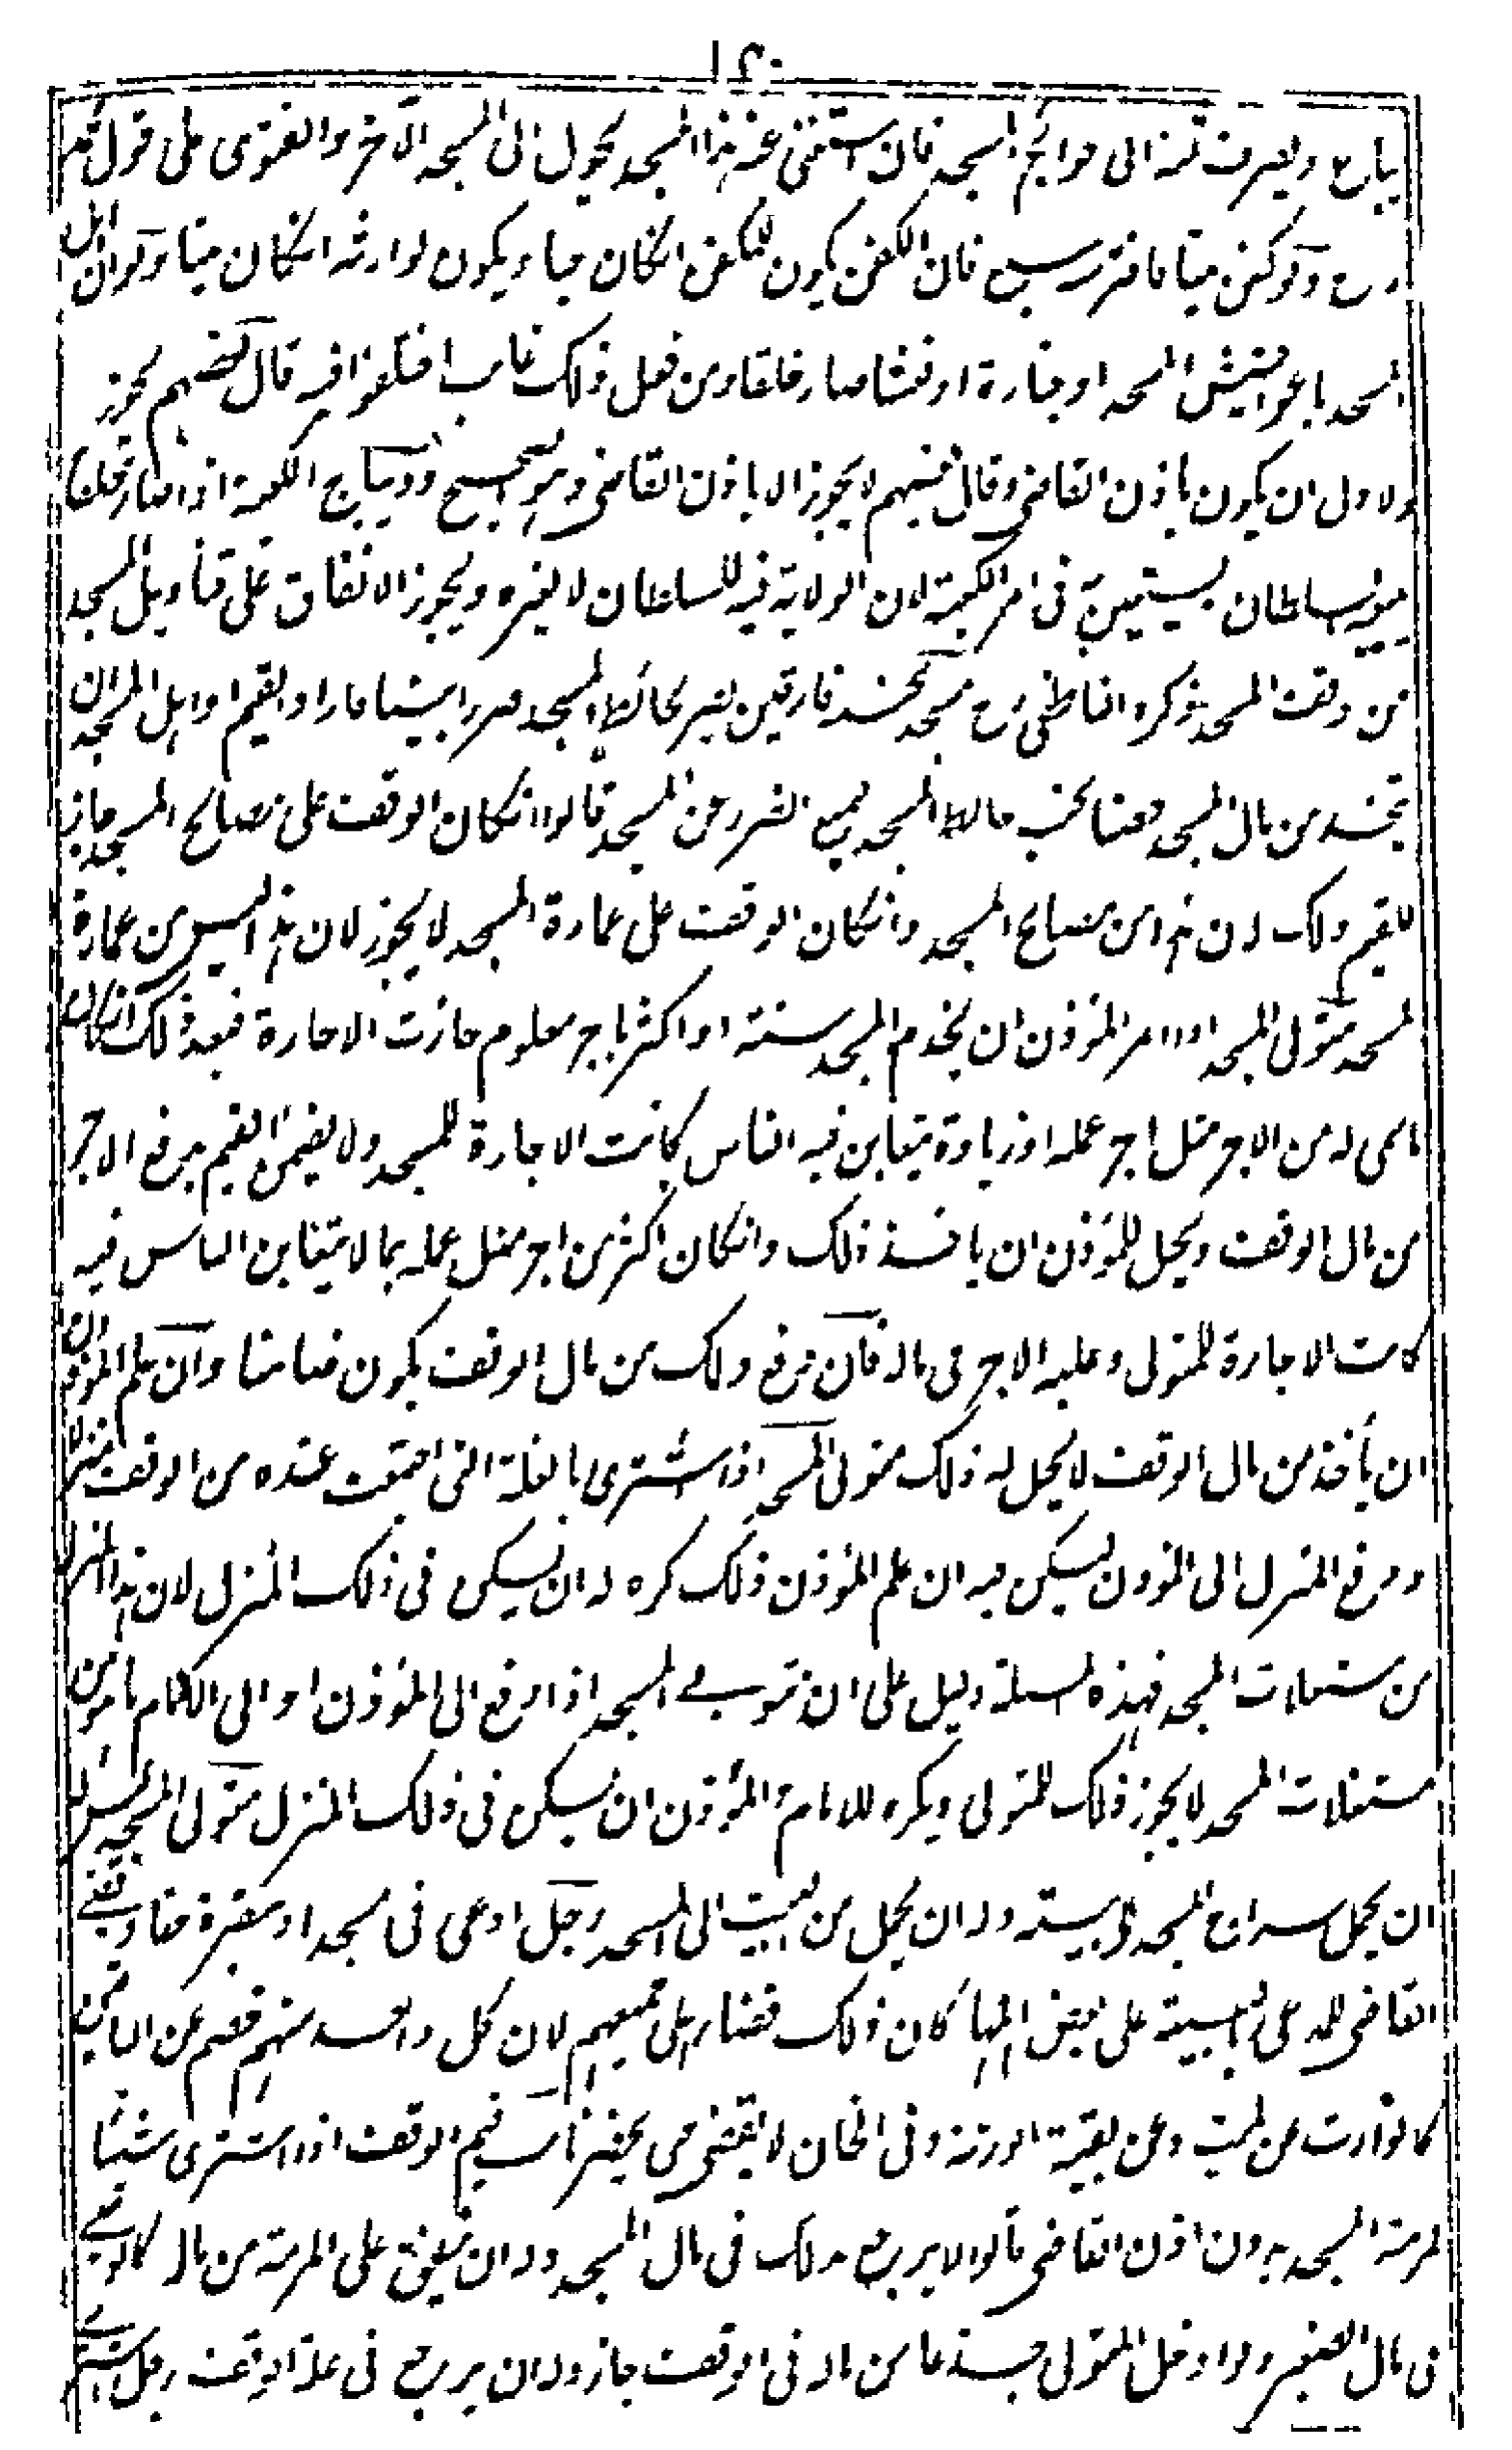 ١٢٠
يباع ويصرف ثمنه الى حوائج المسجد فان استغنى عنه هذا المسجد يحول الى المسجد الآخر والفتوى على قول محمد
رح ولو كفن ميتا فافترسه سبع فان الكفن يكون للمكفن انكان حيا ويكون لوارثه انكان ميتا ولو ان اهل
المسجد باعوا حشيش المسجد او جنازة او نعشا صار خلقا ومن فعل ذلك غائب اختلفوا فيه قال بعضهم يجوز
والاولى ان يكون باذن القاضى وقال بعضهم لا يجوز الا باذن القاضى وهو الصحيح وديباج الكعبة اذا صار خلقا
يبيعه السلطان يستعين به فى امر الكعبة لان الولاية فيه للسلطان لا لغيره ويجوز الانفاق على قناديل المسجد
من وقف المسجد ذكره الناطفى رح مسجد بجنبه فارقين يضر بحائط المسجد ضررا بينا فاراد القيم او اهل المسجد ان
يتخذ من مال المسجد حصنا بجنب حائط المسجد ليمنع الضرر عن المسجد قالوا انكان الوقف على مصالح المسجد جاز
للقيم ذلك لان هذا من مصالح المسجد وانكان الوقف على عمارة المسجد لا يجوز لان هذا ليس من عمارة
المسجد متولى المسجد اذا امر المؤذن ان يخدم المسجد سنة او اكثر باجر معلوم جازت الاجارة فبعد ذلك انكان
ما سمى له من الاجر مثل اجر عمله او زيادة يتغابن فيه الناس كانت الاجارة للمسجد ولا يضمن القيم بدفع الاجر
من مال الوقف ويحل للمؤذن ان ياخذ ذلك وانكان اكثر من اجر مثل عمله بما لا يتغابن الناس فيه
كانت الاجارة للمتولى وعليه الاجر فى ماله فان دفع ذلك من مال الوقف يكون ضامنا وان علم المؤذن
ان يأخذ من مال الوقف لا يحل له ذلك متولى المسجد اذا اشترى بالغلة التى اجتمعت عنده من الوقف منزلا
ودفع المنزل الى المؤذن ليسكن فيه ان علم المؤذن ذلك كره له ان يسكن فى ذلك المنزل لان هذا المنزل
من مستغلات المسجد فهذه المسئلة دليل على ان متولى المسجد اذا دفع الى المؤذن او الى الامام ما هو من
مستغلات المسجد لا يجوز ذلك للمتولى ويكره للامام والمؤذن ان يسكن فى ذلك المنزل متولى المسجد ليس له
ان يحمل سراج المسجد الى بيته وله ان يحمل من البيت الى المسجد رجل ادعى فى مسجد او مقبرة حقا وقضى
القاضى للمدعى بالبينة على بعض اهلها كان ذلك قضاء على جميعهم لان كل واحد منهم خصم عن الباقين
كالوارث عن الميت وعن بقية الورثة وفى الخان لا يقضى حتى يحضر نائب قيم الوقف اذا اشترى شيئا
لمرمة المسجد بدون اذن القاضى قالوا لا يرجع بذلك فى مال المسجد وله ان ينفق على المرمة من ماله كالوصى
فى مال الصغير ولو ادخل المتولى جذعا من ماله فى الوقف جاز وله ان يرجع فى غلة الوقف رجل